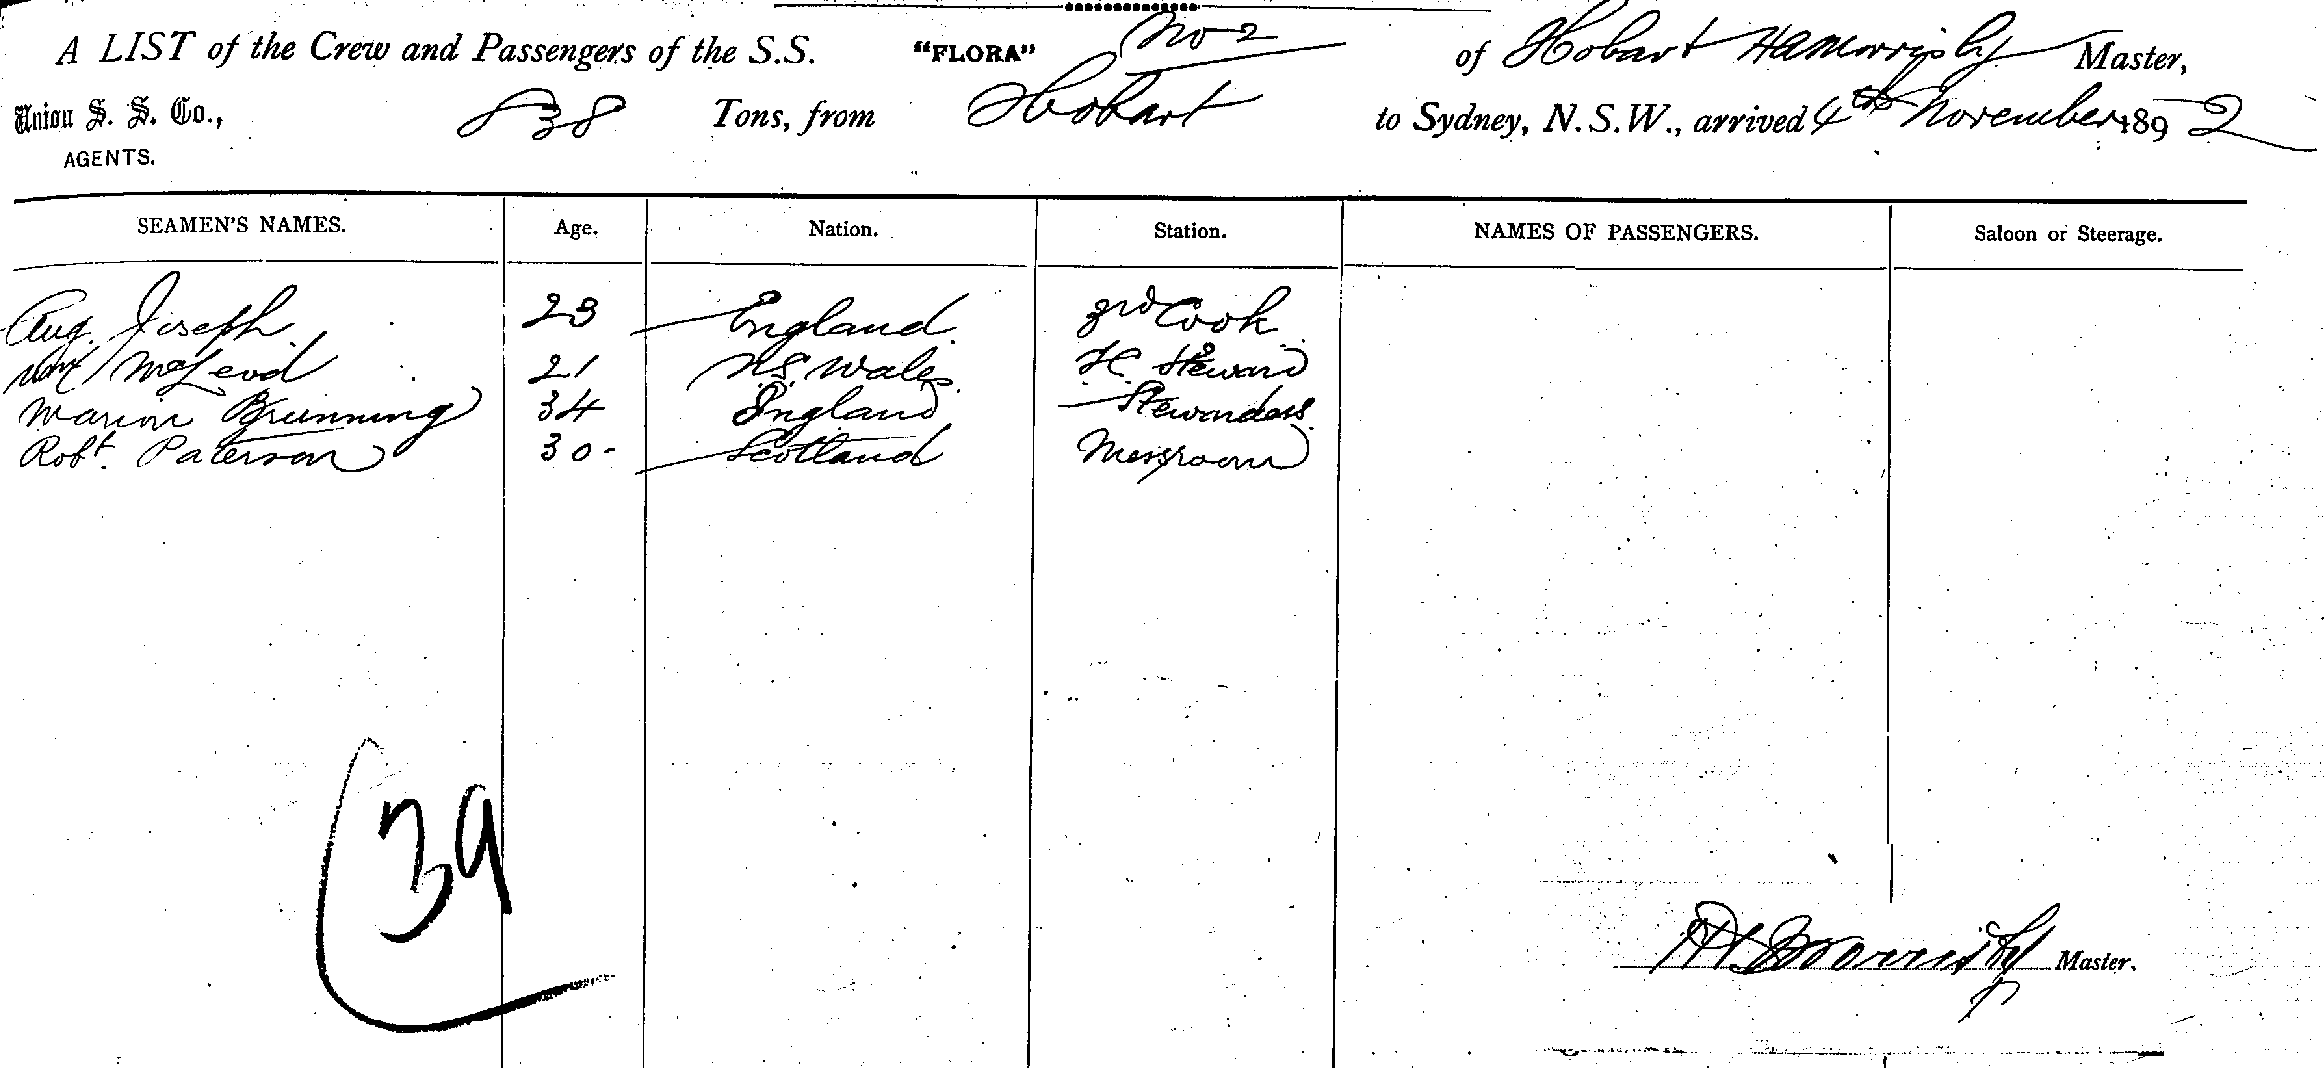 No 2
A LIST of the Crew and Passengers of the S.S. "FLORA" of Hobart HA Morrisby Master,
Union S. S. Co., 838 Tons, from Hobart to Sydney, N.S.W., arrived 4th November 1892
AGENTS.
SEAMEN'S NAMES. Age. Nation. Station. NAMES OF PASSENGERS. Saloon or Steerage.
Aug. Joseph 23 England 3rd Cook
Wm McLeod 21 N.S. Wales Steward
Marion Brunning 34 England Stewardess
Robt. Paterson 30 Scotland Messroom
39
Morrisby Master.